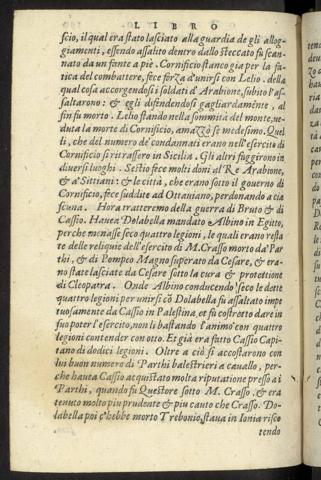 LIBRO
scio, il qual era stato lasciato alla guardia de gli allog
giamenti, essendo assalito dentro dallo steccato fu scan
nato da un fante a piè. Cornificio stanco gia per la fa
tica del combattere, fece forza d'unirsi con Lelio. della
qual cosa accorgendosi i soldati d'Arabione, subito l'as
saltarono: & egli difendendosi gagliardamēte, al
fin fu morto. Lelio stando nella sommità del monte, ve
duta la morte di Cornificio, amazzò se medesimo. Quel
li, che del numero de' condannati erano nell'esercito di
Cornificio si ritrassero in Sicilia. Gli altri fuggirono in
diversi luoghi. Sestio fece molti doni al Re Arabione,
& a' Sittiani: & le città, che erano sotto il governo di
Cornificio, fece suddite ad Ottauiano, perdonando a cia
scuna. Hora tratteremo della guerra di Bruto & di
Cassio. Hauea Dolabella mandato Albino in Egitto,
perche menasse seco quattro legioni, le quali erano resta
te delle reliquie dell'esercito di M. Crasso morto da' Par
thi, & di Pompeo Magno superato da Cesare, & era-
no state lasciate da Cesare sotto la cura & protettione
di Cleopatra. Onde Albino conducendo seco le dette
quattro legioni per unirsi cō Dolabella fu assaltato impe
tuosamente da Cassio in Palestina, et fu costretto dare in
suo poter l'esercito, non li bastando l'animo con quattro
legioni contender con otto. Et già era fatto Cassio Capi
tano di dodici legioni. Oltre a ciò si accostarono con
lui buon numero di Parthi balestrieri a cauallo, per-
che haueua Cassio acquistato molta riputatione presso a i
Parthi, quando fu Questore sotto M. Crasso, & era
tenuto molto piu prudente & piu cauto che Crasso. Do-
labella poi c'hebbe morto Trebonio, staua in Ionia risco
tendo